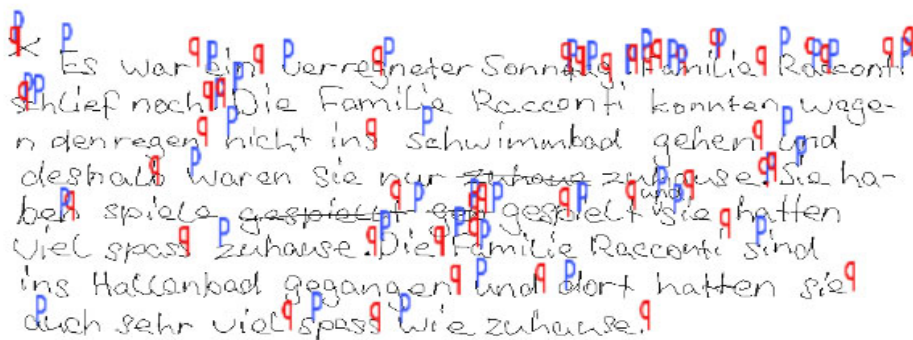 Es war ein verregneter Sonntag. Familie Racconti
schlief noch. Die Familie Racconti konnten wage-
n denregen nicht ins schwimmbad gehen und
deshalb waren sie nur zuhause zuhause. Sie ha-
ben spiele gespielt gespielt und sie hatten
viel spass zuhause. Die Familie Racconti sind
ins Hallenbad gegangen und dort hatten sie
auch sehr viel spass wie zuhause.